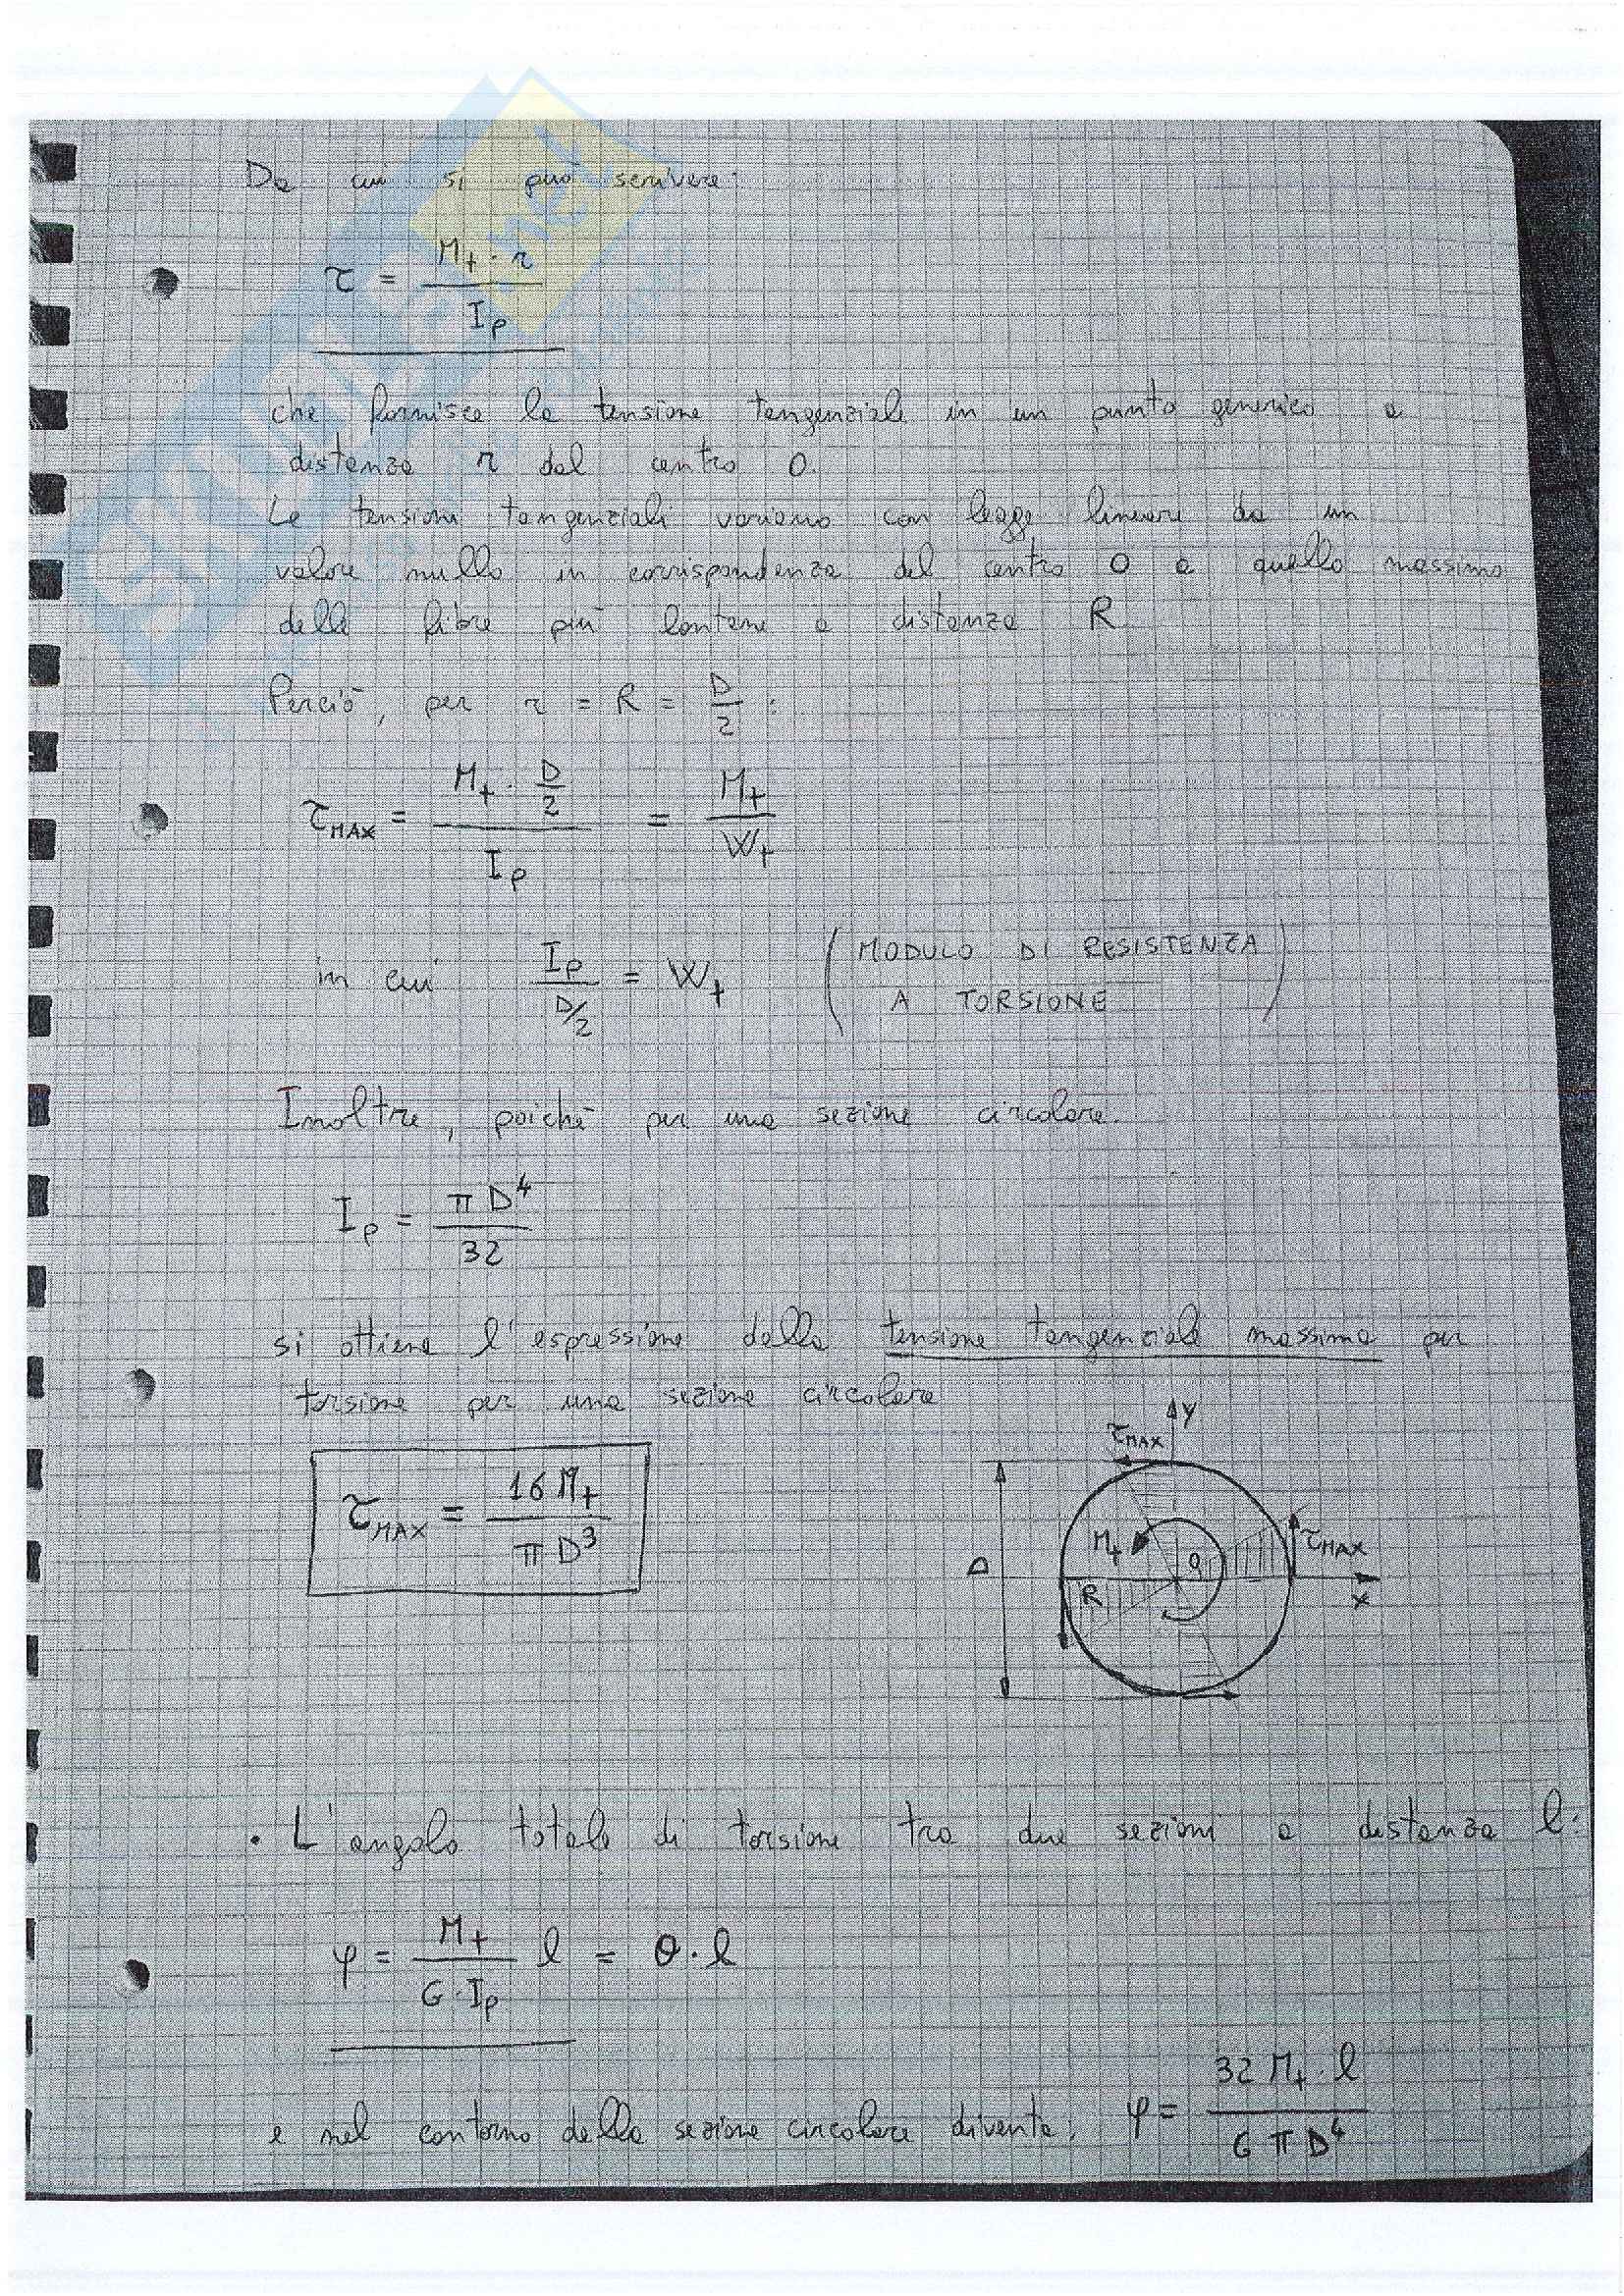 Da cui si può scrivere:
τ = M_t · r / I_p
che fornisce la tensione tangenziale in un punto generico a
distanza r dal centro O.
Le tensioni tangenziali variano con legge lineare da un
valore nullo in corrispondenza del centro O a quello massimo
delle fibre più lontane a distanza R
Perciò, per r = R = D/2 :
τ_MAX = (M_t · D/2) / I_p = M_t / W_t
in cui I_p / (D/2) = W_t (MODULO DI RESISTENZA
A TORSIONE)
Inoltre, poiché per una sezione circolare.
I_p = π D⁴ / 32
si ottiene l'espressione della tensione tangenziale massima per
torsione per una sezione circolare
τ_MAX = 16 M_t / π D³
τ_MAX
y
D
M_t
O
τ_MAX
R
x
• L'angolo totale di torsione tra due sezioni a distanza l:
φ = (M_t / G · I_p) l = θ · l
e nel contorno della sezione circolare diventa. φ = 32 M_t · l / G π D⁴
SKUOLA.net